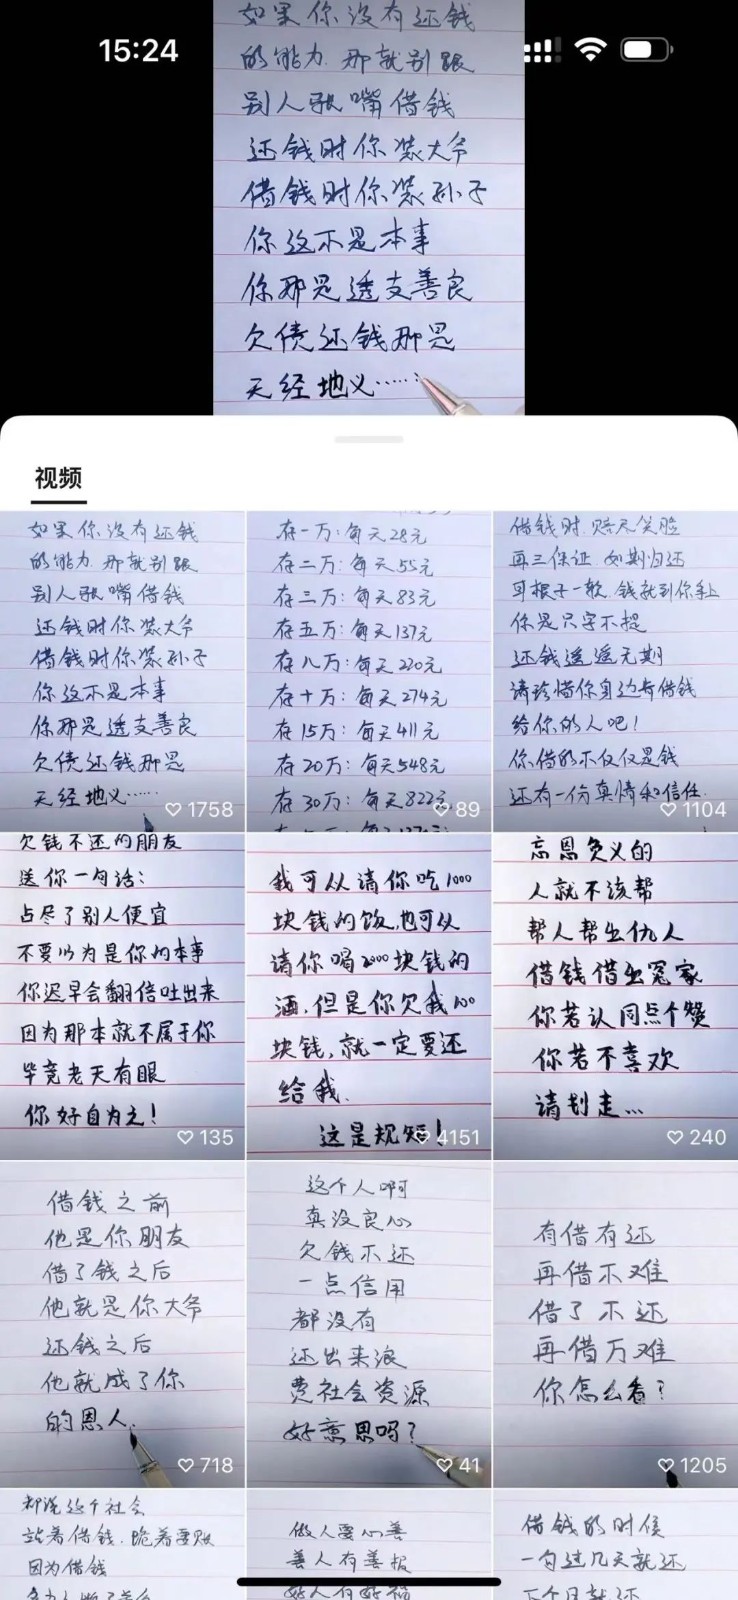 15:24
如果你没有还钱
的能力.那就别跟
别人张嘴借钱
还钱时你装大爷
借钱时你装孙子
你这不是本事
你那是透支善良
欠债还钱那是
天经地义……
视频
如果你没有还钱
的能力.那就别跟
别人张嘴借钱
还钱时你装大爷
借钱时你装孙子
你这不是本事
你那是透支善良
欠债还钱那是
天经地义……
1758
存一万:每天28元
存二万:每天55元
存三万:每天83元
存五万:每天137元
存八万:每天220元
存十万:每天274元
存15万:每天411元
存20万:每天548元
存30万:每天822元
89
借钱时.赔尽笑脸
再三保证.如期归还
耳根子一软.钱就到你手上
你是只字不提
还钱遥遥无期
请珍惜你身边每借钱
给你的人吧!
你借的不仅仅是钱
还有一份真情和信任.
1104
欠钱不还的朋友
送你一句话:
占尽了别人便宜
不要以为是你的本事
你迟早会翻倍吐出来
因为那本就不属于你
毕竟老天有眼
你好自为之!
135
我可以请你吃1000
块钱的饭.也可以
请你喝2000块钱的
酒.但是你欠我100
块钱,就一定要还
给我.
这是规矩!
4151
忘恩负义的
人就不该帮
帮人帮出仇人
借钱借出冤家
你若认同点个赞
你若不喜欢
请划走...
240
借钱之前
他是你朋友
借了钱之后
他就是你大爷
还钱之后
他就成了你
的恩人.
718
这个人啊
真没良心
欠钱不还
一点信用
都没有
还出来浪
费社会资源
好意思吗?
41
有借有还
再借不难
借了不还
再借万难
你怎么看?
1205
却说这个社会
站着借钱.跪着要账
因为借钱
做人要心善
善人有善报
好人有好福
借钱的时候
一句过几天就还
下个月就还